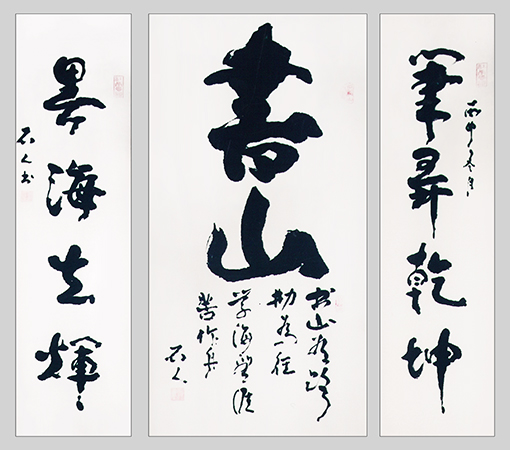 筆
乾坤
丙申冬月
書山
书山有路
勤为径
学海無涯
苦作舟
石人
墨海生輝
石人书